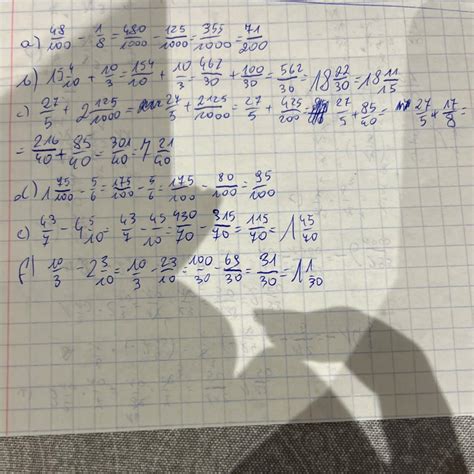 a) 48/100 - 1/8 = 480/1000 - 125/1000 = 355/1000 = 71/200
b) 15 4/10 + 10/3 = 154/10 + 10/3 = 462/30 + 100/30 = 562/30 = 18 22/30 = 18 11/15
c) 27/5 + 2 125/1000 = 27/5 + 2125/1000 = 27/5 + 425/200 = 27/5 + 85/40 = 27/5 + 17/8 =
= 216/40 + 85/40 = 301/40 = 7 21/40
d) 1 75/100 - 5/6 = 175/100 - 5/6 = 175/100 - 80/100 = 95/100
e) 43/7 - 4 5/10 = 43/7 - 45/10 = 430/70 - 315/70 = 115/70 = 1 45/70
f) 10/3 - 2 3/10 = 10/3 - 23/10 = 100/30 - 69/30 = 31/30 = 1 1/30